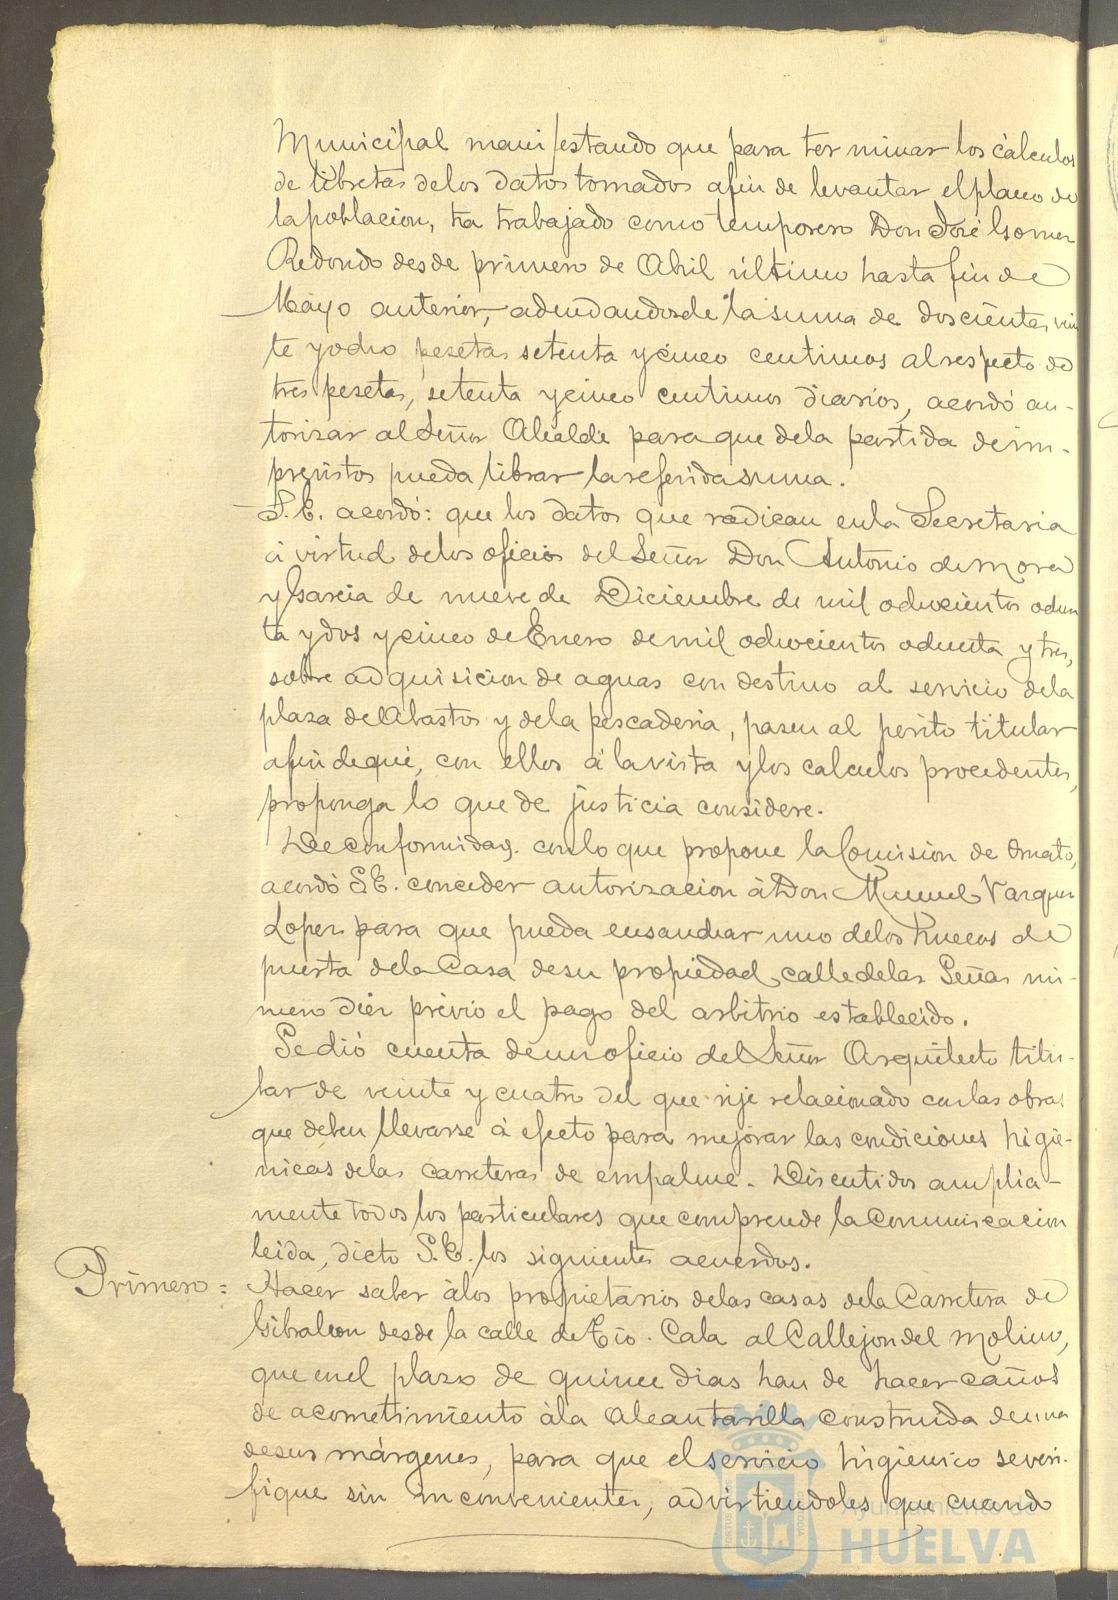 Municipal manifestando que para terminar los cálculos
de libretas de los datos tomados afin de levantar el plano de
la poblacion, ha trabajado como temporero Don José Gomez
Redondo desde primero de Abril último hasta fin de
Mayo anterior, adeudandosele la suma de doscientas vein
te y ocho pesetas setenta y cinco centimos al respecto de
tres pesetas, setenta y cinco centimos diarios, acordó au-
torizar al Señor Alcalde para que de la partida de im-
previstos pueda librar la referida suma.
S.E. acordó: que los datos que radican en la Secretaria
á virtud de los oficios del Señor Don Antonio de Mora
y Garcia de nueve de Diciembre de mil ochocientos ochen
ta y dos y cinco de Enero de mil ochocientos ochenta y tres,
sobre adquisicion de aguas con destino al servicio de la
plaza de Abastos y de la pescaderia, pasen al perito titular
afin de que, con ellos á la vista y los calculos procedentes,
proponga lo que de justicia considere.
De conformidad con lo que propone la Comision de Ornato,
acordó S.E. conceder autorizacion á Don Manuel Vazquez
Lopez para que pueda ensanchar uno de los huecos de
puerta de la Casa de su propiedad calle de las Peñas nú-
mero diez prévio el pago del arbitrio establecido.
Se dió cuenta de un oficio del Señor Arquitecto titu-
lar de veinte y cuatro del que rije relacionado con las obras
que deben llevarse á efecto para mejorar las condiciones higié-
nicas de las carreteras de empalme. Discutidos amplia-
mente todos los particulares que comprende la comunicacion
leida, dictó S.E. los siguientes acuerdos.
Primero = Hacer saber á los propietarios de las casas de la Carretera de
Gibraleon desde la calle de Tio Cala al Callejon del Molino,
que en el plazo de quince dias han de hacer caños
de acometimiento á la alcantarilla construida de una
de sus márgenes, para que el servicio higienico se veri-
fique sin inconvenientes, advirtiendoles que cuando
Ayuntamiento de
HUELVA